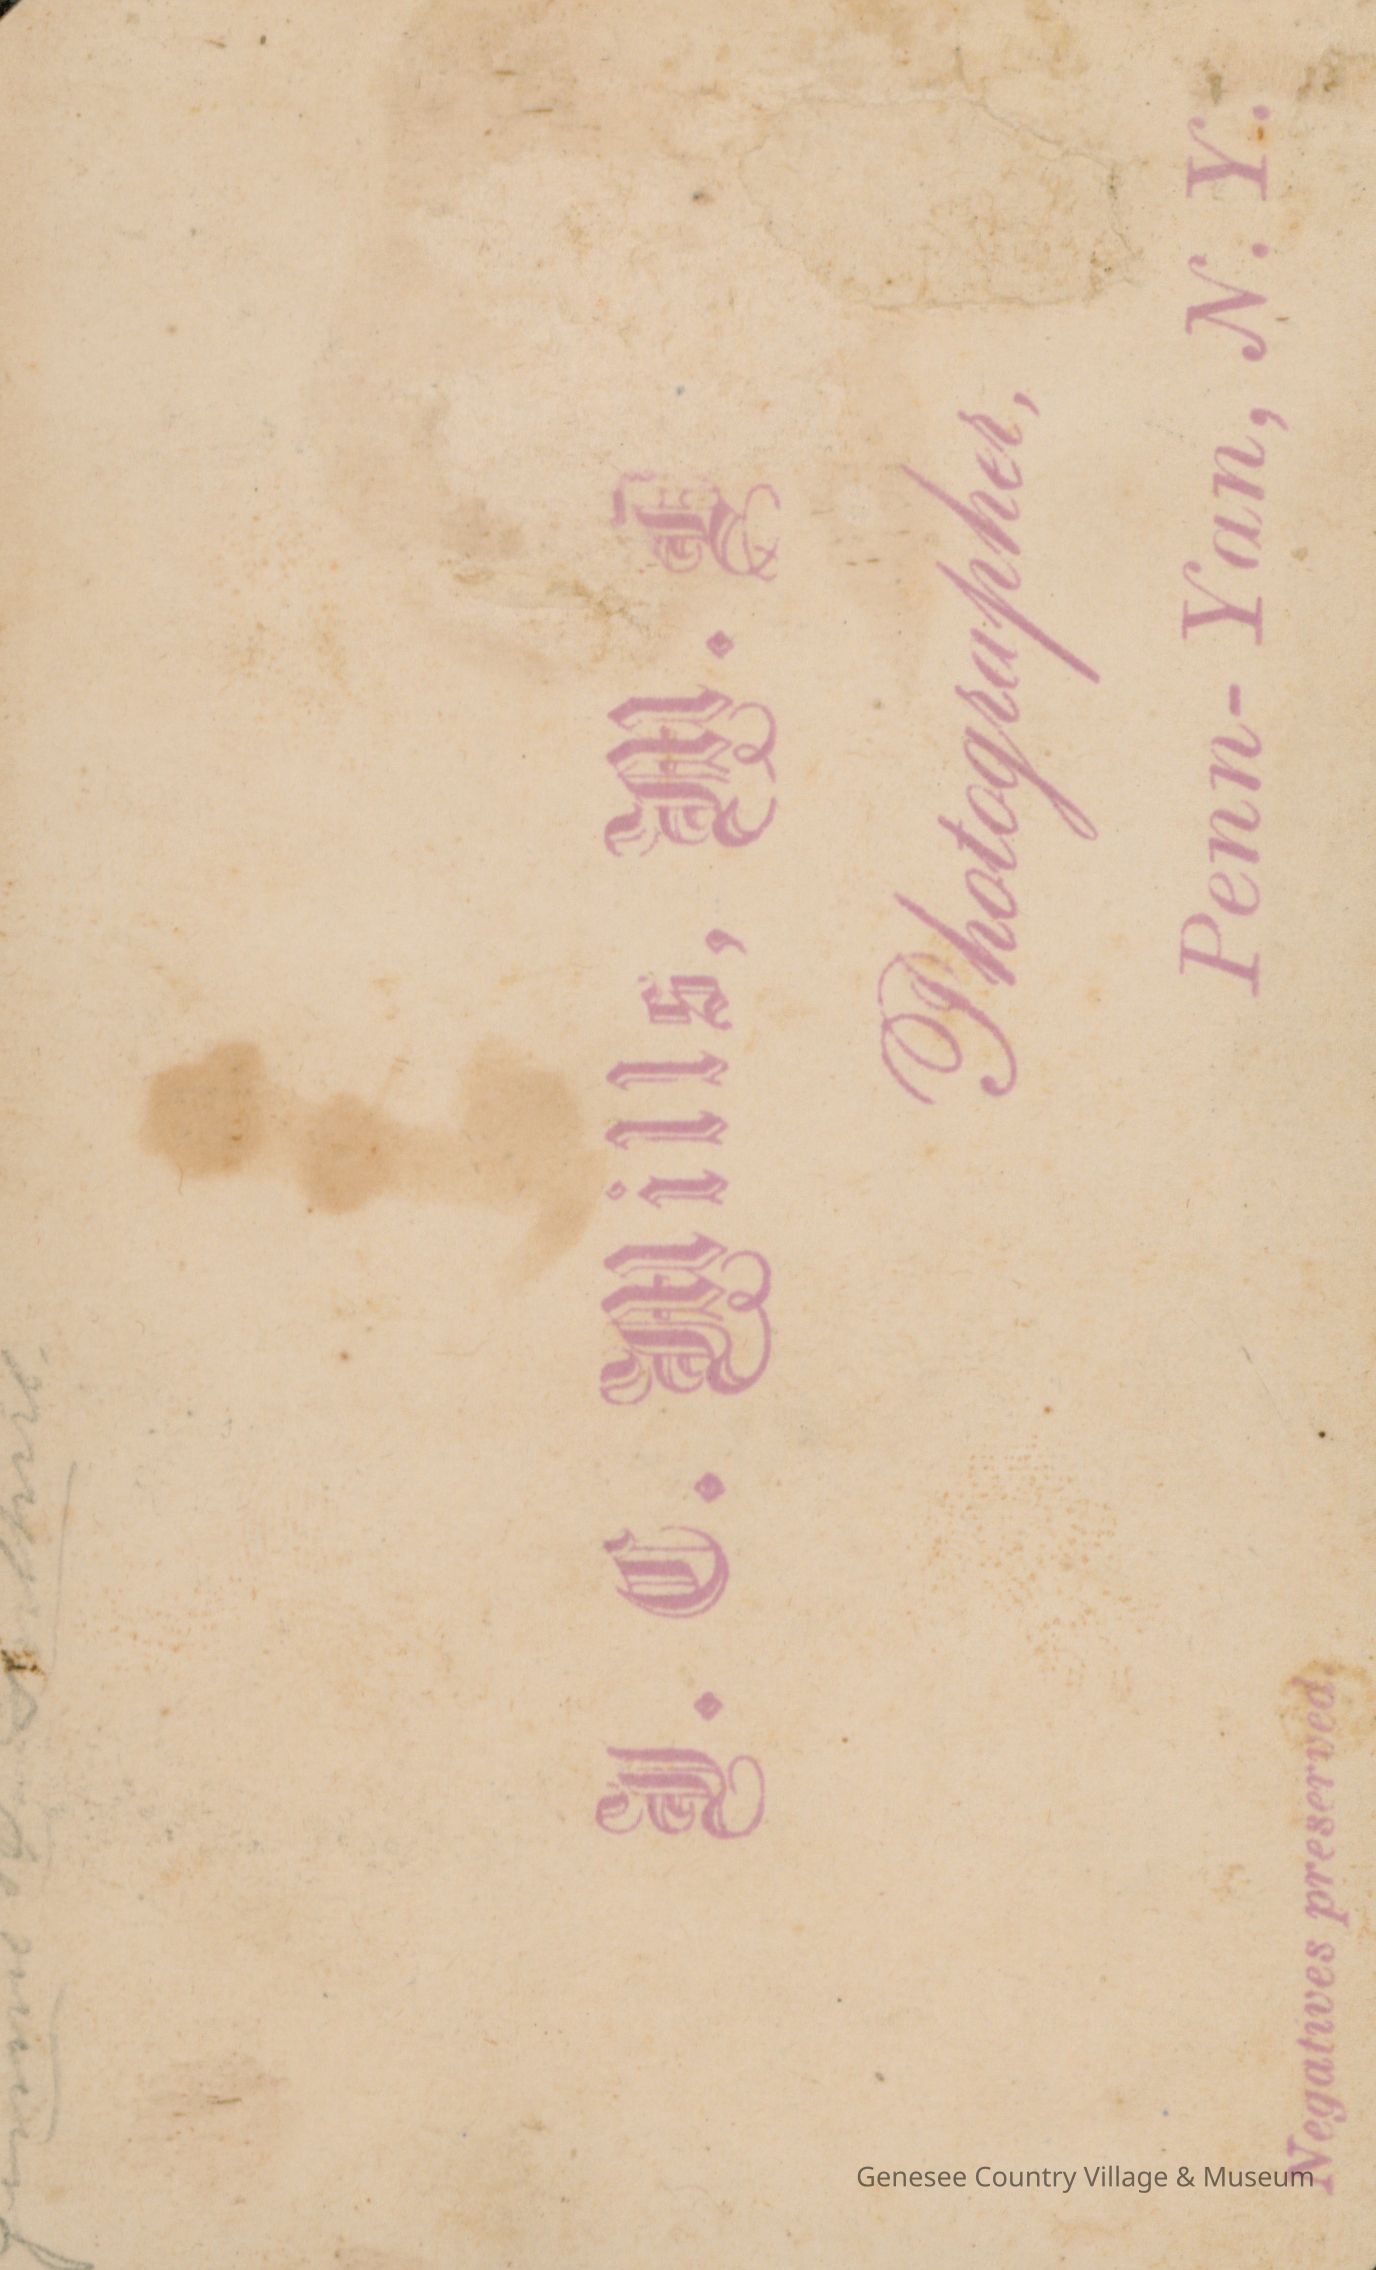 J. C. Mills, M.
Photographer,
Penn-Yan, N. Y.
Negatives preserved.
Genesee Country Village & Museum